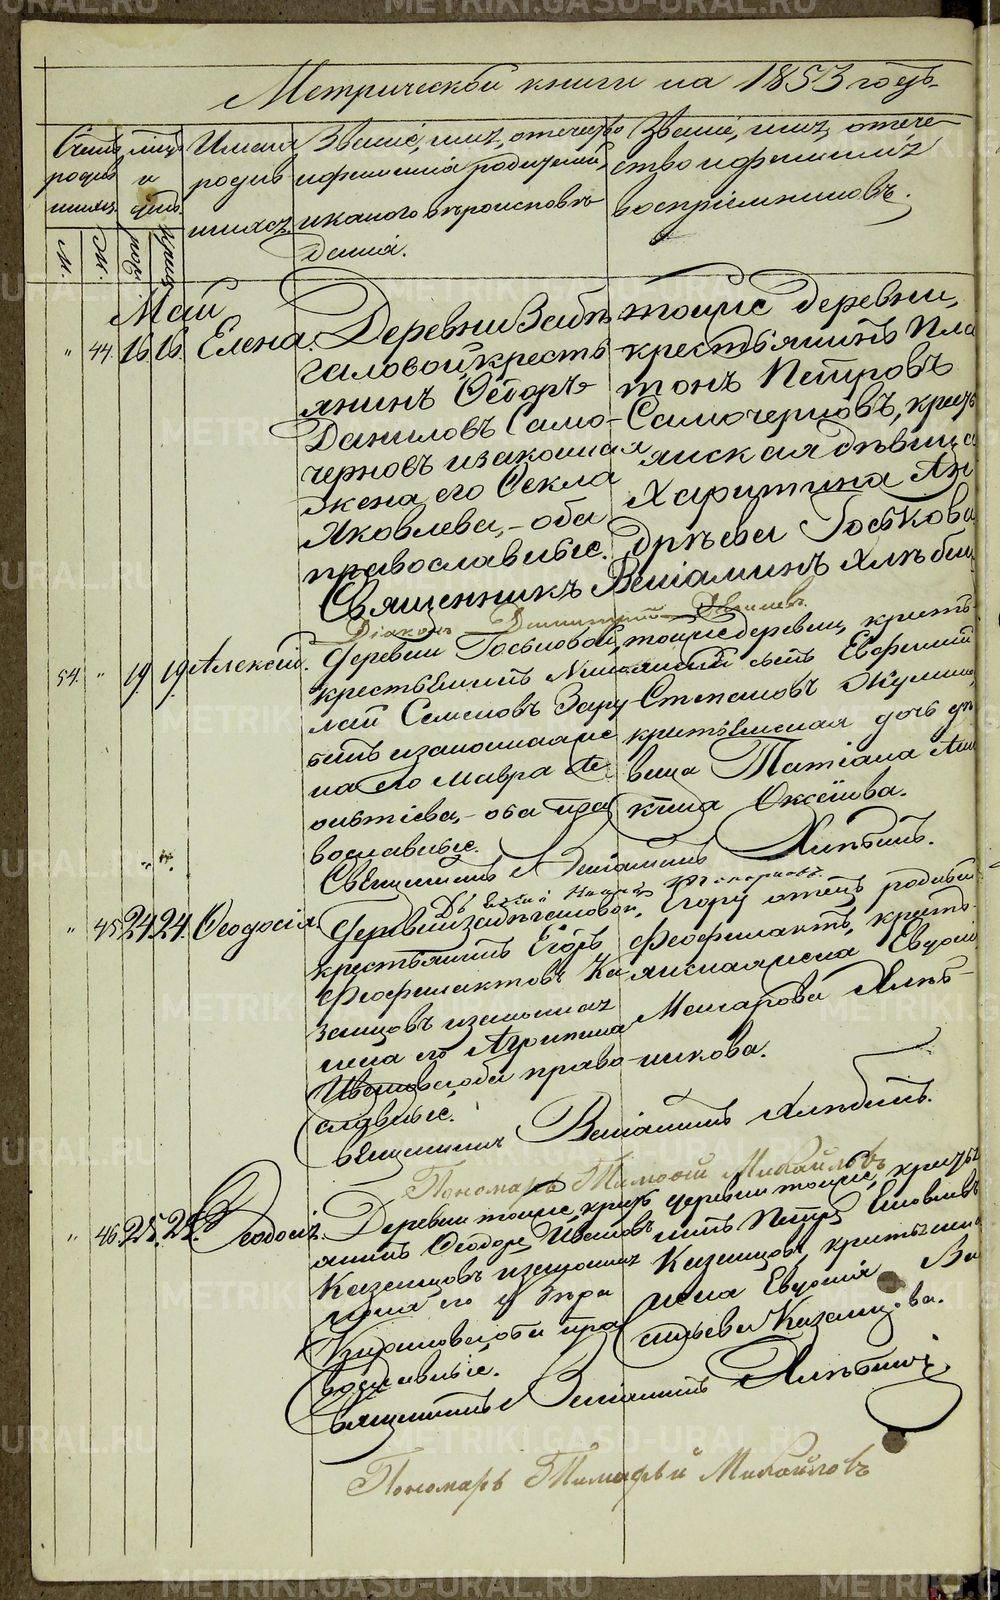 Метрической книги на 1853 годъ.
Счетъ родив шихся. м. ж.
мѣс. и день. рож. крещ.
Имена родив шихся.
Званіе, имя, отчество и фамилія родителей, и какого вѣроисповѣ данія.
Званіе, имя, отече ство и фамилія воспріемниковъ.
Май
" 44. 16 16. Елена.
Деревни Забѣ
галовой, кресть
янинъ Ѳедоръ
Даниловъ Само-
черновъ и законная
жена его Ѳекла
Яковлева, - оба
православные.
тоже деревни,
крестьянинъ Пла
тонъ Петровъ
Самочерновъ, крест
янская дѣвица
Харитина Ан
дрѣева Госькова
Священникъ Веніаминъ Хлѣбин
Діаконъ Димитрій
54. " 19. 19. Алексій.
Деревни Госьковой,
крестьянинъ Нико
лай Семеновъ Зару
бинъ и законная же
на его Мавра Ле
онтіева, - оба пра
вославные.
тоже деревни, кресть
янскій сынъ Евфимій
Степановъ
крестьянская дочь дѣ
вица Татіана Ани
кина
Священникъ Веніаминъ Хлѣбинъ.
" 45. 24. 24. Ѳеодосія.
Деревни Забѣгаловой,
крестьянинъ Егоръ
Феофилактовъ Ка
занцовъ и законная
жена его Агрипина
Иванова оба право-
славные.
Егору отецъ родной
Феофилактъ, кресть
янская жена Евдокі
Макарова Хлѣб-
никова.
Священникъ Веніаминъ Хлѣбинъ.
Пономарь Тимофей Михайловъ
" 46. 25. 25. Ѳеодосія.
Деревни тоже, кресть
янинъ Ѳеодоръ Ивановъ
Казанцовъ и законная
жена его
Кириловна оба пра
вославные.
деревни тоже, кресть
янинъ Петръ
Казанцовъ, крестьянская
жена Евдокія Ва
сильева Казанцова.
Священникъ Веніаминъ Хлѣбинъ
Пономарь Тимофѣй Михайловъ
METRIKI.GASU-URAL.RU